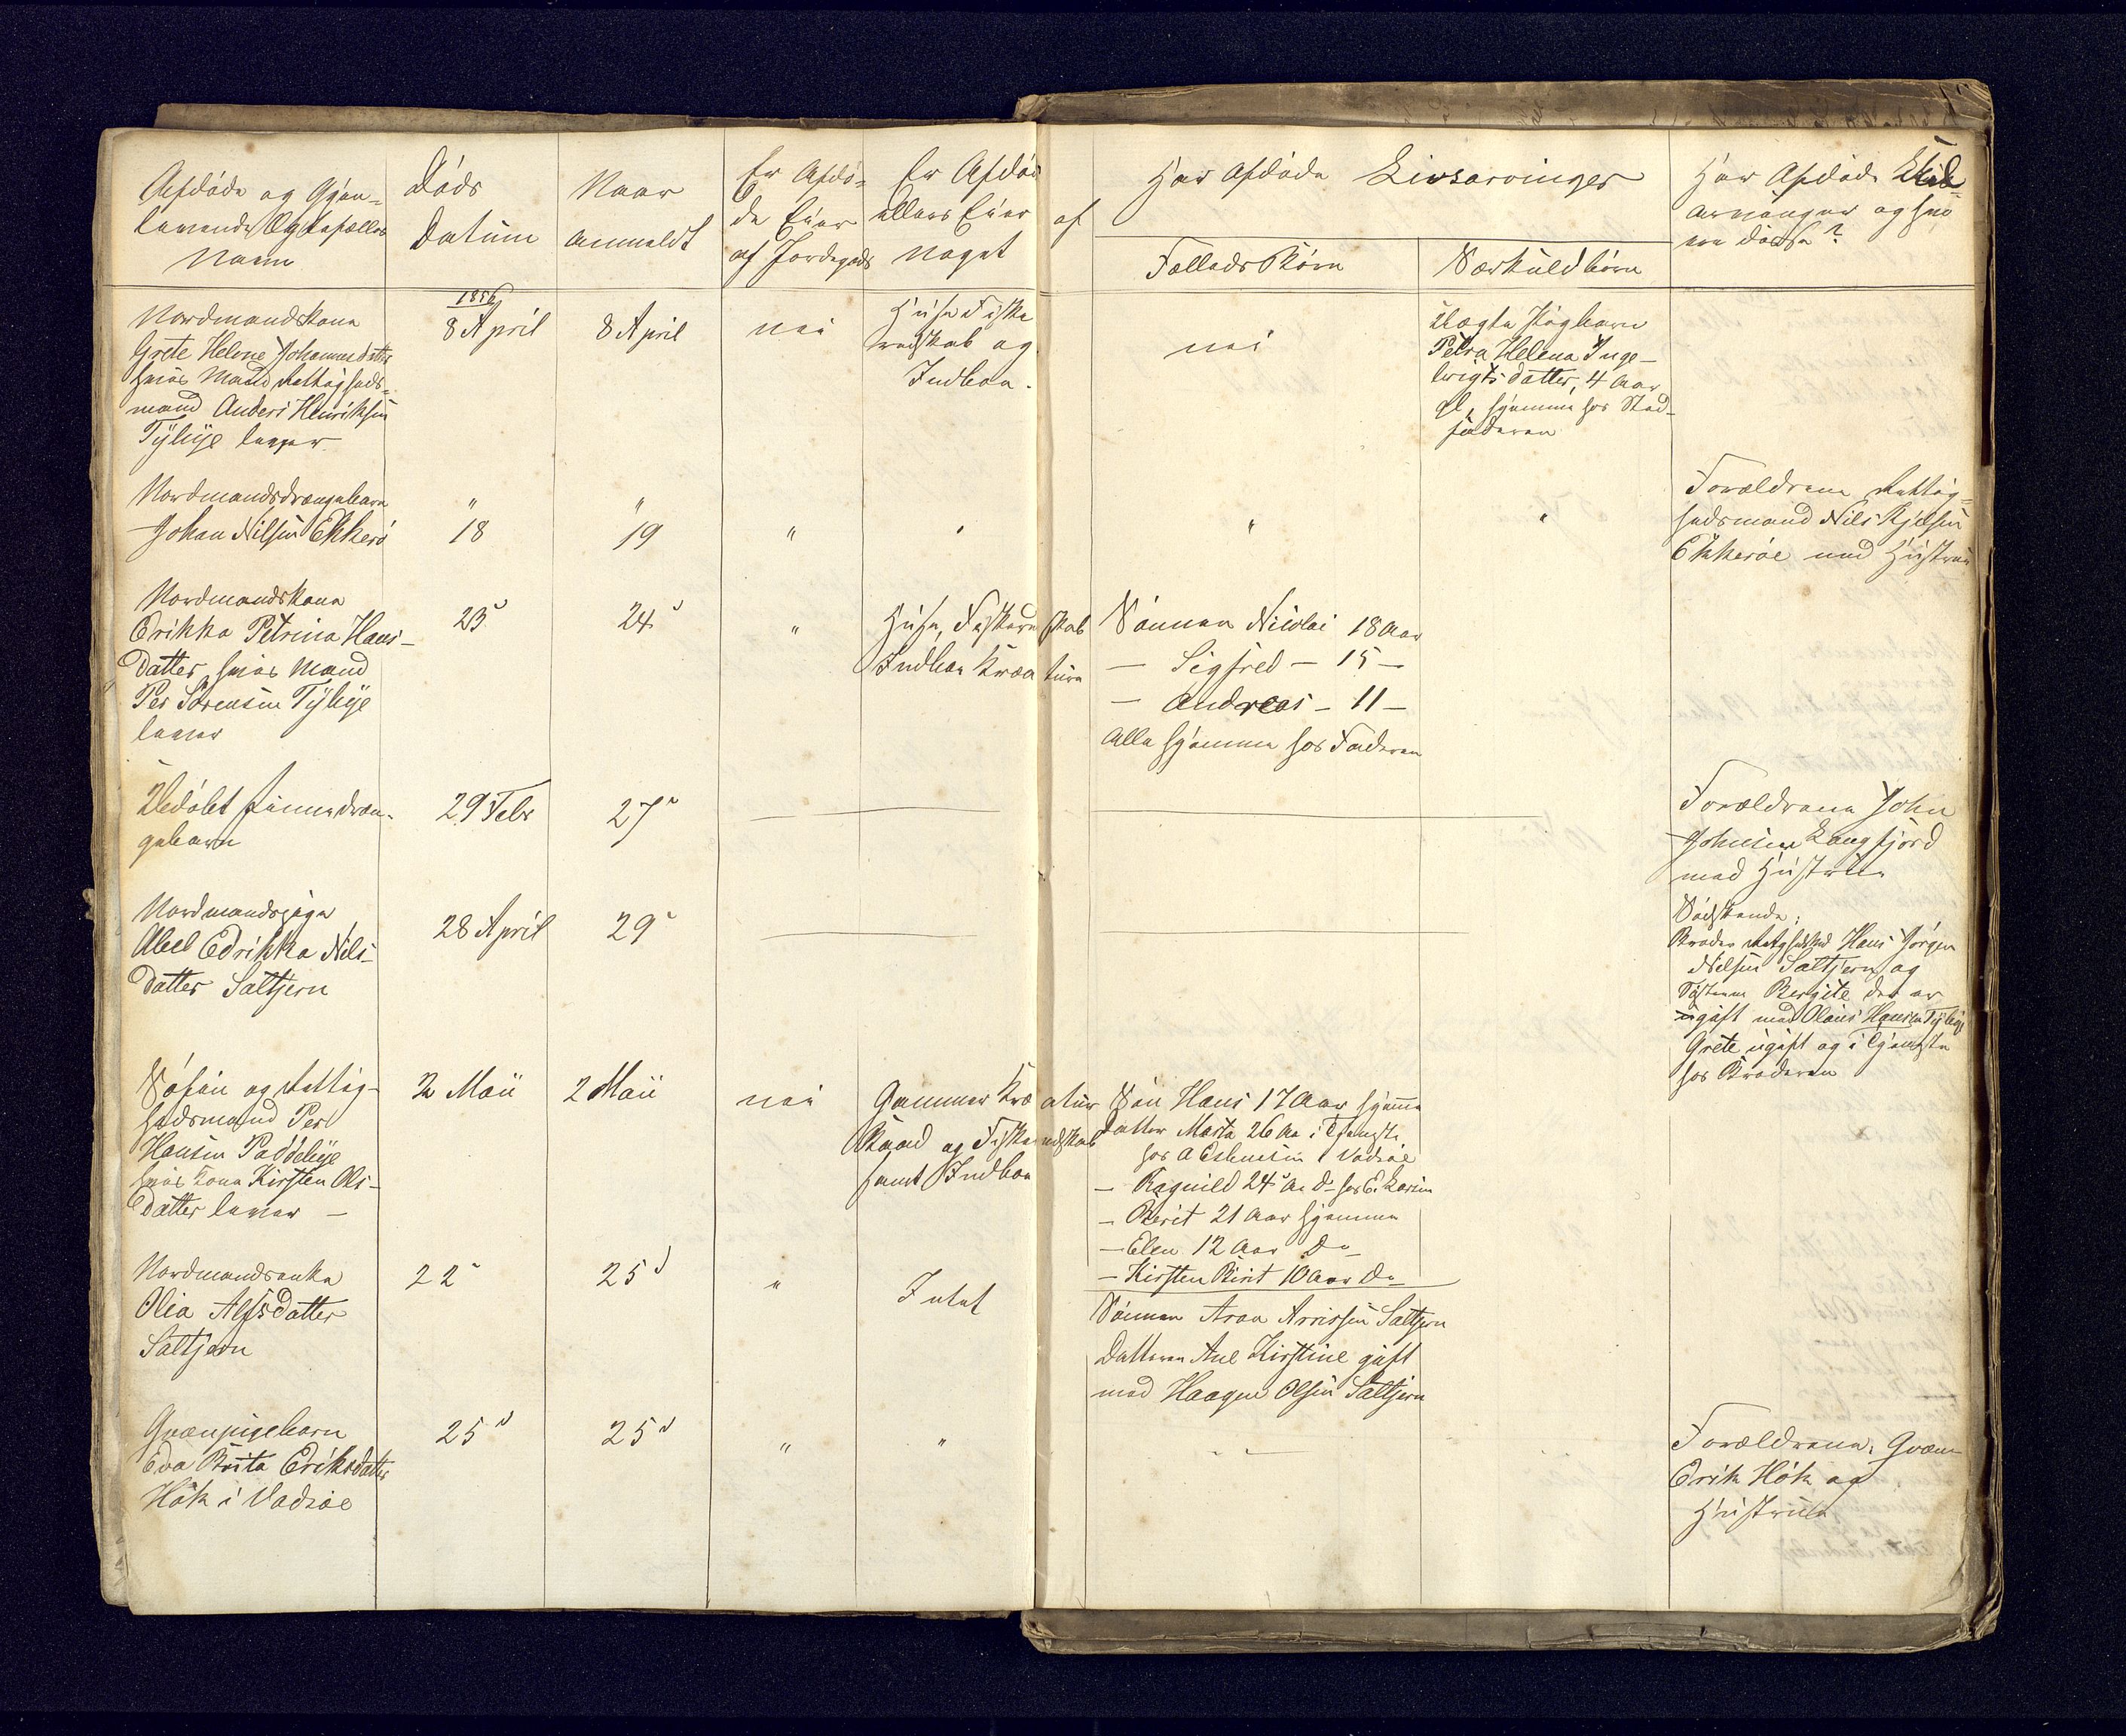 Afdøde og Gjen-
levende Ægtefælles
Navn
Døds
Datum
Naar
anmeldt
Er Afdø-
de Eier
af Jordegods
Er Afdøde
ellers Eier af
noget
Har Afdøde Livsarvinger
Fælleds Børn
Særkuldbørn
Har Afdøde Ud-
arvinger og hvo
ere disse?
Nordmandskone
Grete Helene Johannesdatter
hvis Mand Rettigheds-
mand Anders Henriksen
Tÿbÿe lever
1856
8 April
8 April
nei
Huse Fiske
redskab og
Indboe.
nei
Uægte Pigebarn
Petra Helena Inge-
brigtsdatter, 4 Aar
gl, hjemme hos Sted-
faderen
Nordmandsdrengebarn
Johan Nilsen Ekkerö
"
18
"
19
"
"
"
"
Forældrene Rettig-
hedsmand Nils Kjelsen
Ekkeröe med Hustrue
Nordmandskone
Erikka Petrina Hans-
datter, hvis Mand
Per Sörensen Tÿbÿe
lever
23
24
"
Huse, Fiskeredskab
Indboe Kreaturer
Sønnen Nicolai 18 Aar
— Sigfred — 15 —
— Andreas — 11 —
Alle hjemme hos Faderen
Udøbt Finnedren-
gebarn
29 Febr
27
Forældrene John
Johnsen Langfjord
med Hustrue
Nordmandspige
Abel Edrikka Nils-
datter Saltjern
28 April
29
Södskende:
Broder Hans Jörgen
Nilsen Saltjern og
Söstrene Bergite der er
gift med Olaus Hansen Tÿbÿe
Grete ugift og i Tjeneste
hos Broderen
Söfin og Rettig-
hedsmand Per
Hansen Paddebÿe
hvis Kone Kirsten Ols-
datter lever —
2 Maii
2 Maii
nei
Gammer Kreatur
Baad og Fiskeredskab
samt Indboe
Sön Hans 17 Aar hjemme
Datter Marta 26 Aa i Tjeneste
hos A Esbensen i Vadsöe
— Ragnild 24 Aa do hos E.
— Berit 21 Aar hjemme
— Elen 12 Aar Do
— Kirsten Birit 10 Aar Do
Nordmandsenke
Olia Alfsdatter
Saltjern
22
25
"
Intet
Sönnen Aron Saltjern
Datteren Ane Kirstine gift
med Haagen Olsen Saltjern
Qvænpigebarn
Eva Brita Eriksdatter
Hök i Vadsöe
25
25
"
"
Forældrene, Qvæn
Erik Hök og
Hustrue